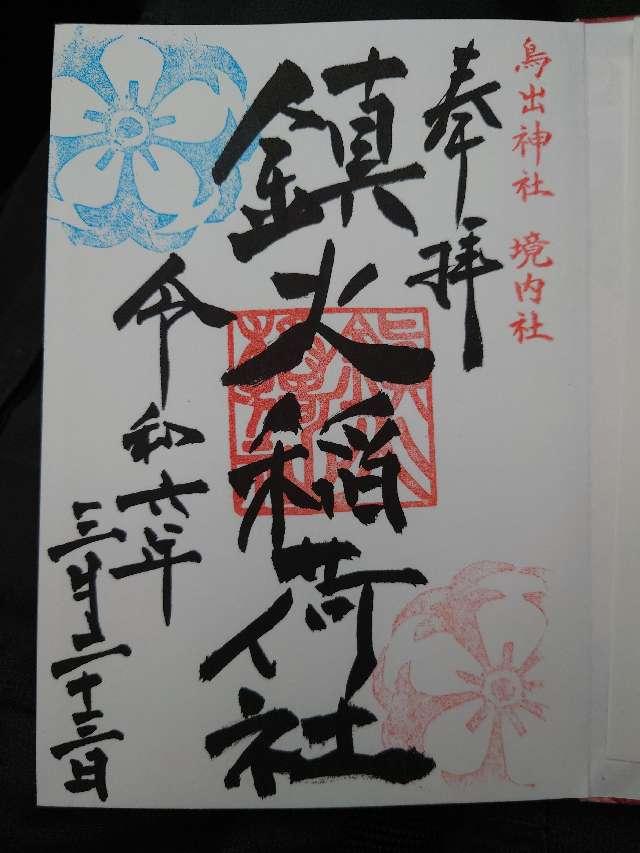 鳥出神社 境内社
奉拝
鎮火稲荷社
令和六年
三月二十三日